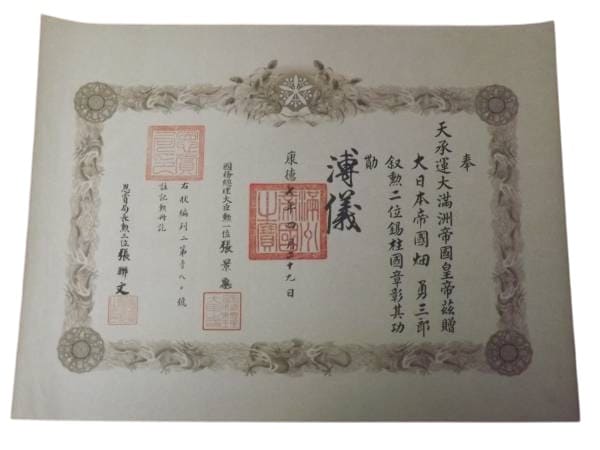 奉
天承運大滿洲帝國皇帝茲贈
大日本帝國畑 勇三郎
叙勲二位錫柱國章彰其功
勛
溥儀
康德七年四月二十九日
國務總理大臣勲一位張景惠
右狀編列二第 號
註記勲冊訖
恩賞局長勲三位張聯文